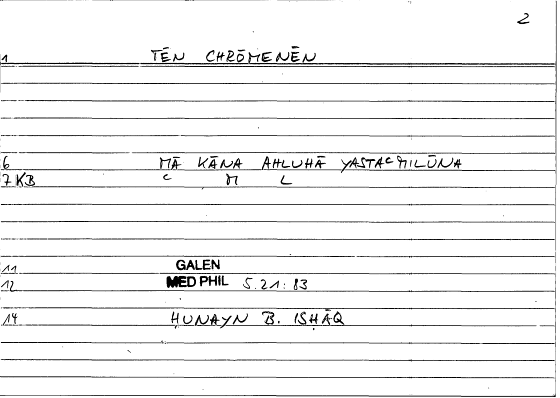 2
1 TĒN CHRŌMENĒN
6 MĀ KĀNA AHLUHĀ YASTAᶜMILŪNA
7 KB C M L
11 GALEN
12 MED PHIL 5.21:83
14 ḤUNAYN B. ISḤĀQ